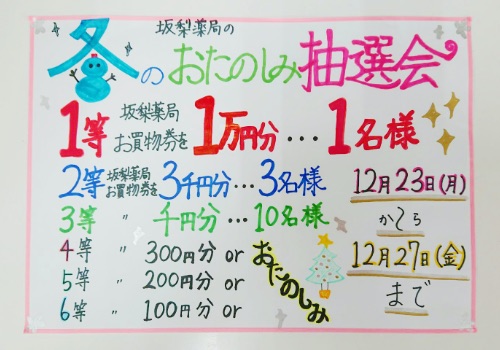 坂梨薬局の
冬のおたのしみ抽選会
1等 坂梨薬局お買物券を 1万円分…1名様
2等 坂梨薬局お買物券を 3千円分…3名様
3等 〃 千円分…10名様
4等 〃 300円分 or
5等 〃 200円分 or
6等 〃 100円分 or
おたのしみ
12月23日(月)
から
12月27日(金)
まで